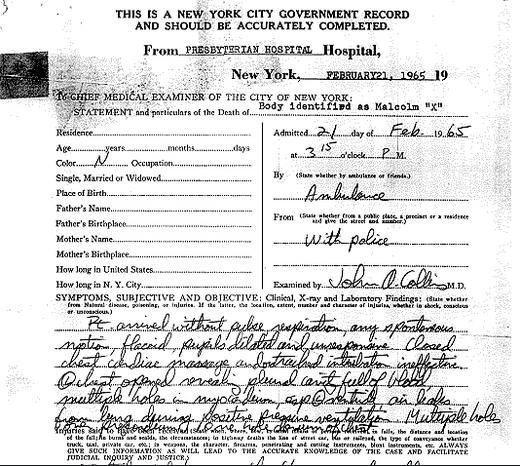 THIS IS A NEW YORK CITY GOVERNMENT RECORD
AND SHOULD BE ACCURATELY COMPLETED.
From PRESBYTERIAN HOSPITAL Hospital,
New York, FEBRUARY21, 1965 19
To CHIEF MEDICAL EXAMINER OF THE CITY OF NEW YORK:
Body identified as Malcolm "X"
STATEMENT and particulars of the Death of
Residence
Age years months days
Color N Occupation
Single, Married or Widowed
Place of Birth
Father's Name
Father's Birthplace
Mother's Name
Mother's Birthplace
How long in United States
How long in N. Y. City
Admitted 21 day of Feb. 1965
at 3 15 o'clock P M.
By (State whether by ambulance or friends.)
Ambulance
From (State whether from a public place, a precinct or a residence
and give the street and number.)
With police
Examined by John A. Collins M.D.
SYMPTOMS, SUBJECTIVE AND OBJECTIVE: Clinical, X-ray and Laboratory Findings: (State whether
from Natural disease, poisoning, or injuries. If the latter, the location, extent, number and character of injuries, whether in shock, conscious
or unconscious.)
Pt arrived without pulse, respiration, any spontaneous
motion, flaccid, pupils dilated and unresponsive. Closed
chest cardiac massage and intubation ineffective.
chest opened reveals pleural cavity full of blood
multiple holes in myocardium air leaks
from lung during positive pressure ventilation. Multiple holes
falls, the distance and location
of the
truck, taxi, private car, etc.; in weapons, the character, firearms, penetrating and cutting instruments, blunt instruments, etc. ALWAYS
GIVE SUCH INFORMATION AS WILL LEAD TO THE ACCURATE KNOWLEDGE OF THE CASE AND FACILITATE
JUDICIAL INQUIRY AND JUSTICE.)